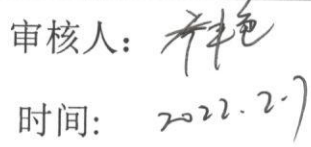 审核人:
时间: 2022.2.7